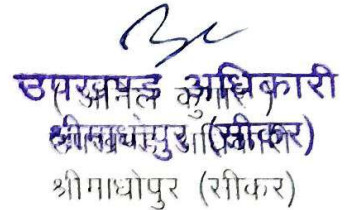 उपखण्ड अधिकारी
(अनिल कुमार)
श्रीमाधोपुर (सीकर)
श्रीमाधोपुर (सीकर)